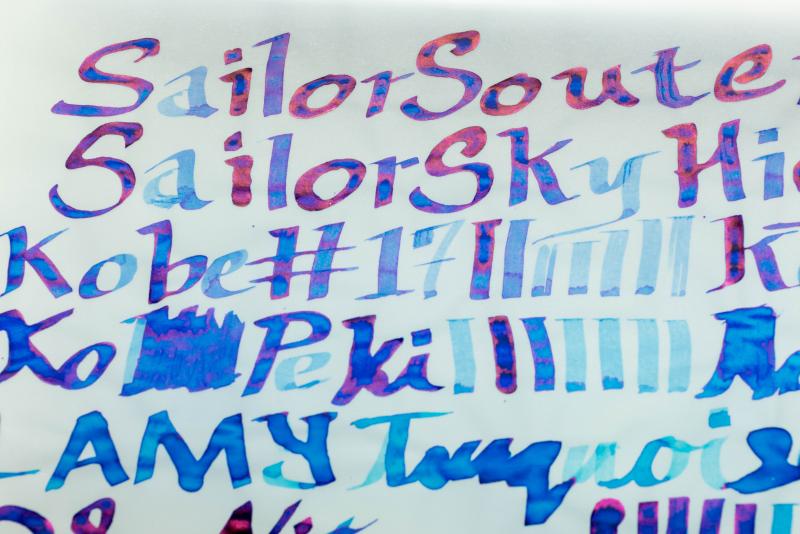 Sailor Soute
Sailor Sky Hi
Kobe #17
Ko Peki
LAMY Turquois